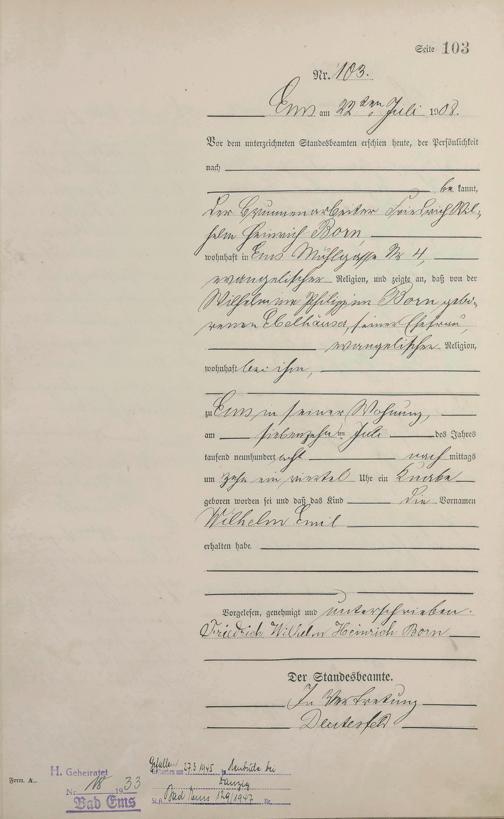 Seite 103
Nr. 103.
Ems am 22ten Juli 1908.
Vor dem unterzeichneten Standesbeamten erschien heute, der Persönlichkeit
nach
be kannt,
der Brunnenarbeiter Friedrich Wil-
helm Heinrich Born,
wohnhaft in Ems Mühlgasse Nr 4,
evangelischer Religion, und zeigte an, daß von der
Wilhelmine Philippine Born gebo-
renen Ebelhäuser, seiner Ehefrau,
evangelischer Religion,
wohnhaft bei ihm,
zu Ems, in seiner Wohnung,
am siebenzehn Juli des Jahres
tausend neunhundert acht nach mittags
um zehn ein viertel Uhr ein Knabe
geboren worden sei und daß das Kind die Vornamen
Wilhelm Emil
erhalten habe.
Vorgelesen, genehmigt und unterschrieben.
Friedrich Wilhelm Heinrich Born
Der Standesbeamte.
In Vertretung
Form. A.
H. Geheiratet
Nr. 18 1933
Bad Ems
Gefallen 27.3 1945 in Neubude bei
Danzig
St.A. Bad Ems 129/1947 Nr.